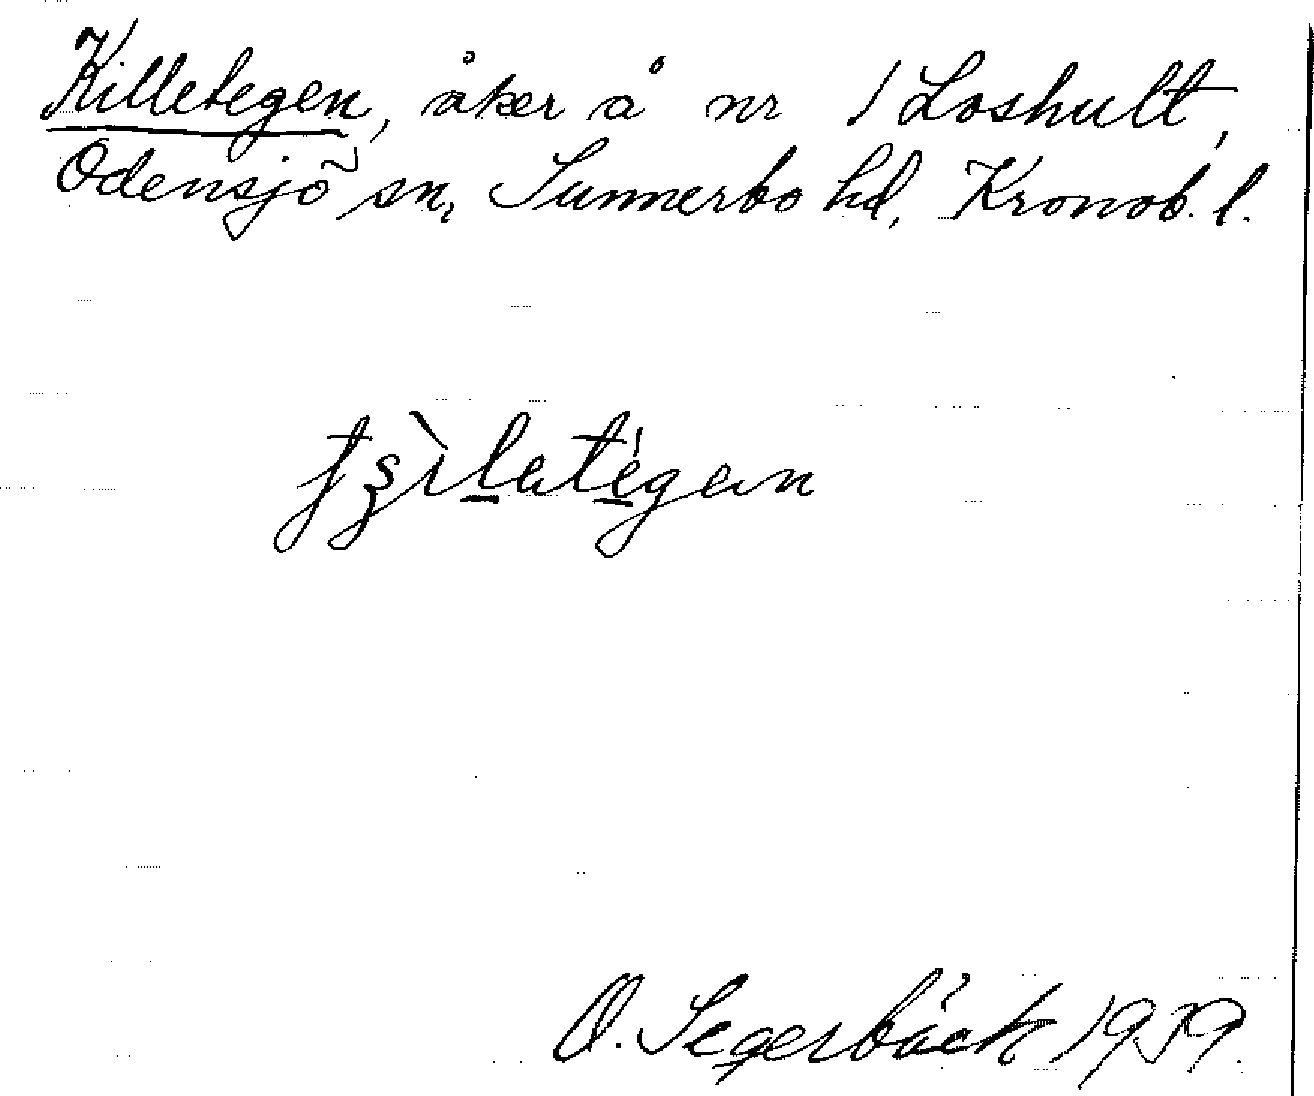 Killetegen, åker å nr 1 Loshult,
Odensjö sn, Sunnerbo hd, Kronob. l.
O. Segerbäck 1939.